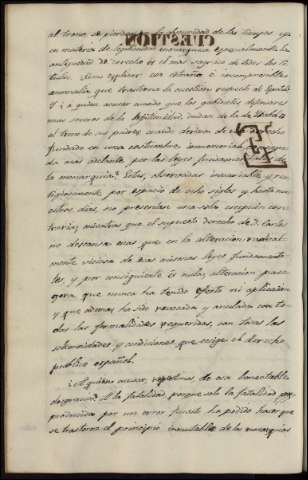 al trono se pierde en la obscuridad de los tiempos y q.
en materia de legitimidad monarquica especialmente la
antiguedad de derecho es el mas sagrado de todos los ti-
tulos. ¿Como explicar esa estraña e incomprensible
anomalia que trastorna la cuestion respecto al
Y ¿a quien acusar cuando que los gabinetes defensores
mas severos de la legitimidad, dudan de la de Isabel
al trono de sus padres cuando deriva de un derecho
fundado en una costumbre inmemorial
da mas delante por las leyes fundamentales de
la monarquia? Estas, observadas invariable y re-
ligiosamente por espacio de ocho siglos y hasta nu-
estros dias, no presentan una sola escepcion con-
traria; mientras que el supuesto derecho de D. Carlos
no descansa mas que en la alteracion radical-
mente viciosa de esas mismas leyes fundamenta-
les, y por consiguiente es nula; alteracion pasa-
gera que nunca ha tenido efecto ni aplicacion
y que ademas ha sido revocada y anulada con to-
das las formalidades requeridas, con todas las
solemnidades y condiciones que exige el derecho
publico español.
¿A quienes acusar, repetimos de esa lamentable
desgracia? A la fatalidad, porque solo la fatalidad
producida por un error funesto ha podido hacer que
se trastorne el principio inmutable de las monarquias
CUESTION